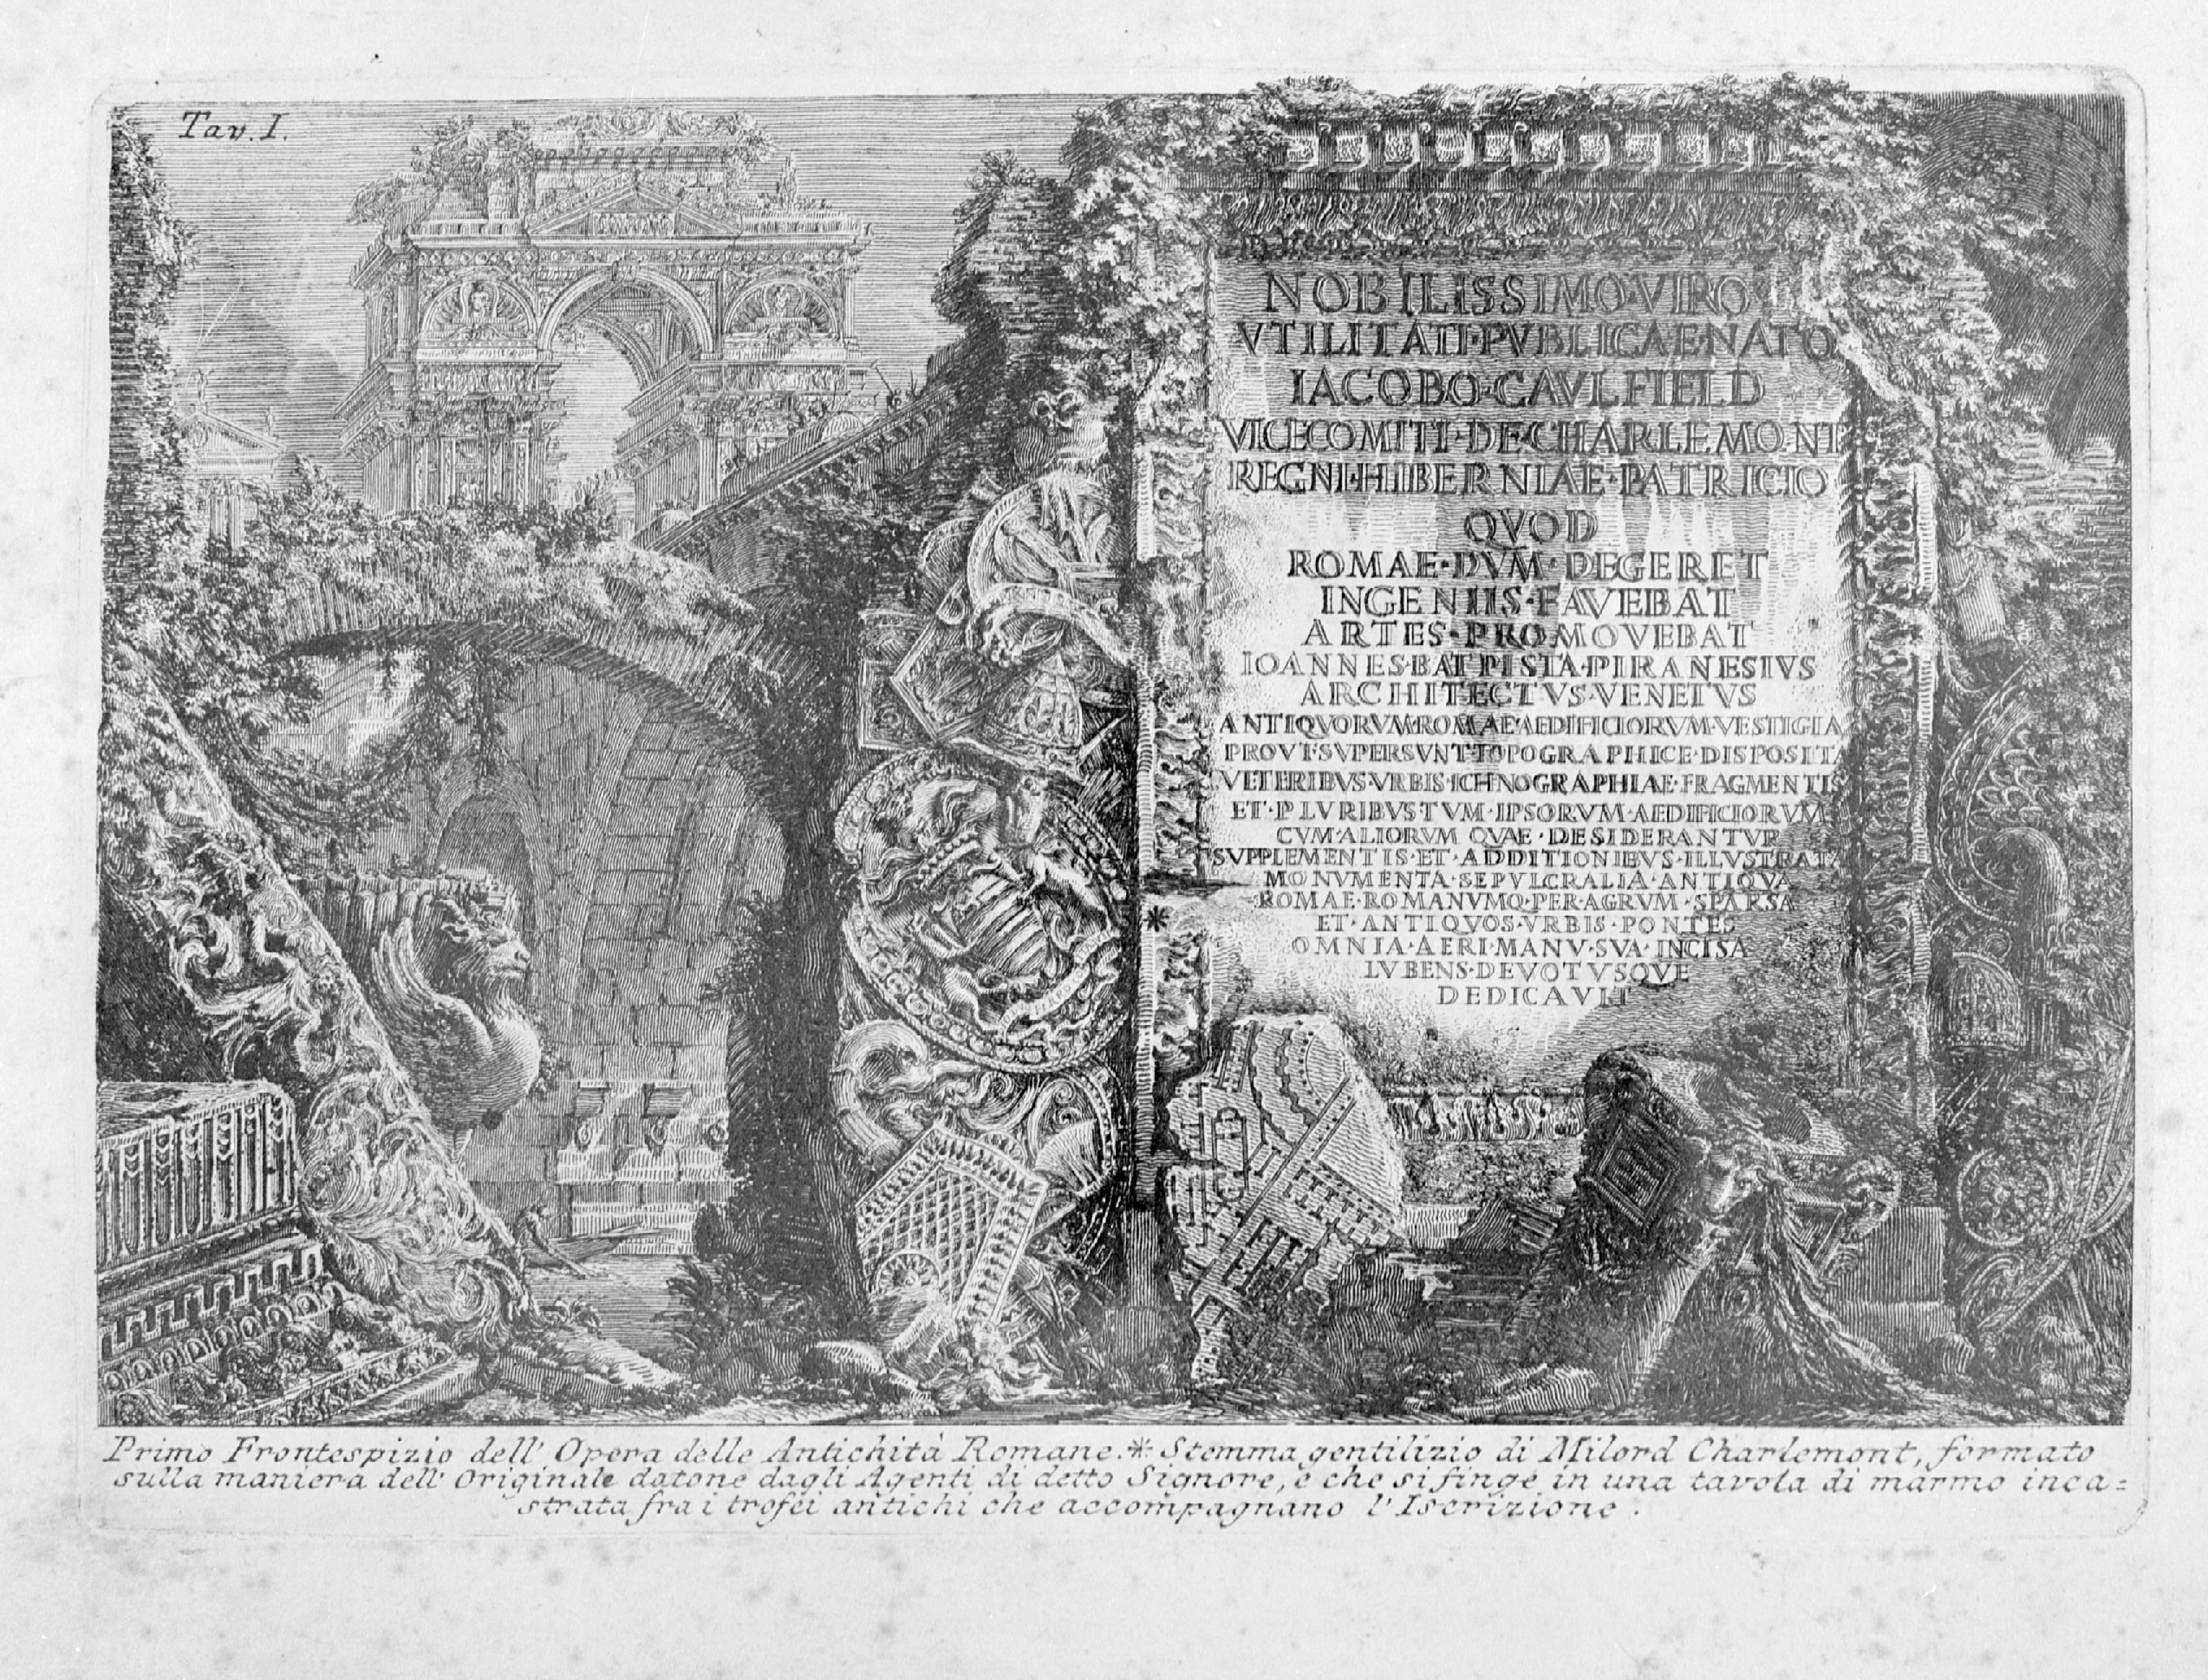 Tav. I.
NOBILISSIMO·VIRO
VTILITATI·PVBLICAE·NATO
IACOBO·CAVLFIELD
VICECOMITI·DE·CHARLEMONT
REGNI·HIBERNIAE·PATRICIO
QVOD
ROMAE·DVM·DEGERET
INGENIIS·FAVEBAT
ARTES·PROMOVEBAT
IOANNES·BAPTISTA·PIRANESIVS
ARCHITECTVS·VENETVS
ANTIQVORVM·ROMAE·AEDIFICIORVM·VESTIGIA
PROVT·SVPERSVNT·TOPOGRAPHICE·DISPOSITA
VETERIBVS·VRBIS·ICHNOGRAPHIAE·FRAGMENTIS
ET·PLVRIBVS TVM·IPSORVM·AEDIFICIORVM
CVM·ALIORVM QVAE·DESIDERANTVR
SVPPLEMENTIS·ET·ADDITIONIBVS·ILLVSTRATA
MONVMENTA·SEPVLCRALIA·ANTIQVA
ROMAE·ROMANVMQ·PER·AGRVM·SPARSA
ET·ANTIQVOS·VRBIS·PONTES
OMNIA·AERI·MANV·SVA·INCISA
LVBENS·DEVOTVSQVE
DEDICAVIT
*
Primo Frontespizio dell' Opera delle Antichità Romane.* Stemma gentilizio di Milord Charlemont, formato
sulla maniera dell' Originale datone dagli Agenti di detto Signore, e che si finge in una tavola di marmo inca=
strata fra i trofei antichi che accompagnano l' Iscrizione.